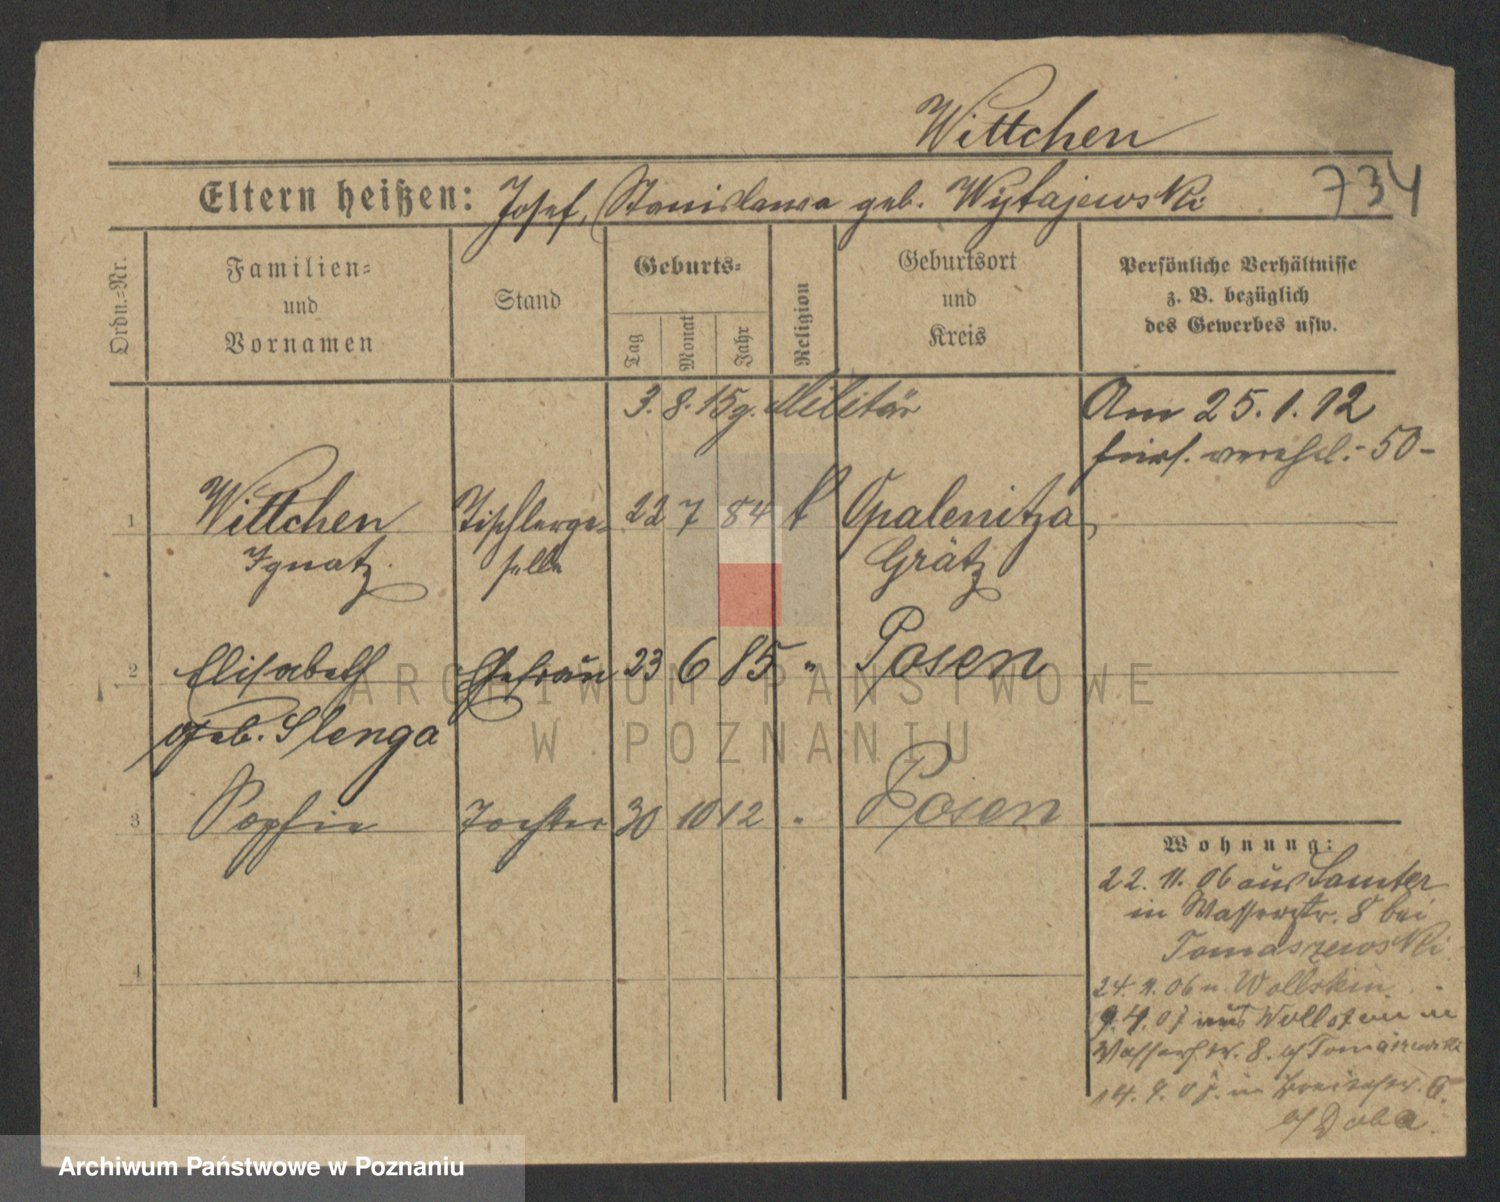 Wittchen
Eltern heißen: Josef, Stanislawa geb. Wytajewski
734
Ordn.=Nr.
Familien=
und
Vornamen
Stand
Geburts=
Tag
Monat
Jahr
Religion
Geburtsort
und
Kreis
Persönliche Verhältnisse
z. B. bezüglich
des Gewerbes usw.
3. 8. 15 g. Militär
Am 25. 1. 12
hier verehel. - 50 -
1 Wittchen Tischlerge= 22 7 84 k Opalenitza,
Ignatz geselle Grätz
2 Elisabeth Ehefrau 23 6 85 " Posen
geb. Slenga
3 Sophie Tochter 30 10 12 " Posen
4
Wohnung:
22. 11. 06 aus Samter
in Wasserstr. 8 bei
Tomaszewski
24. 11. 06 n. Wollstein
9. 4. 07 aus Wollstein in
Wasserstr. 8. b/ Tomaszewski
14. 9. 07. in 6.
b/ Doba.
ARCHIWUM PAŃSTWOWE
W POZNANIU
Archiwum Państwowe w Poznaniu